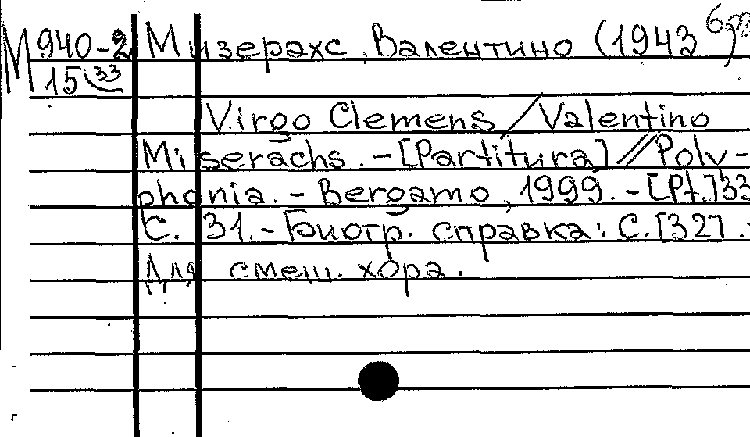 М 940-2 Мизерахс, Валентино (1943
15/33
Virgo Clemens / Valentino
Miserachs. - [Partitura] // Poly-
phonia. - Bergamo, 1999. - [Pt.]33
С. 31. - Биогр. справка: С.[32].
Для смеш. хора.